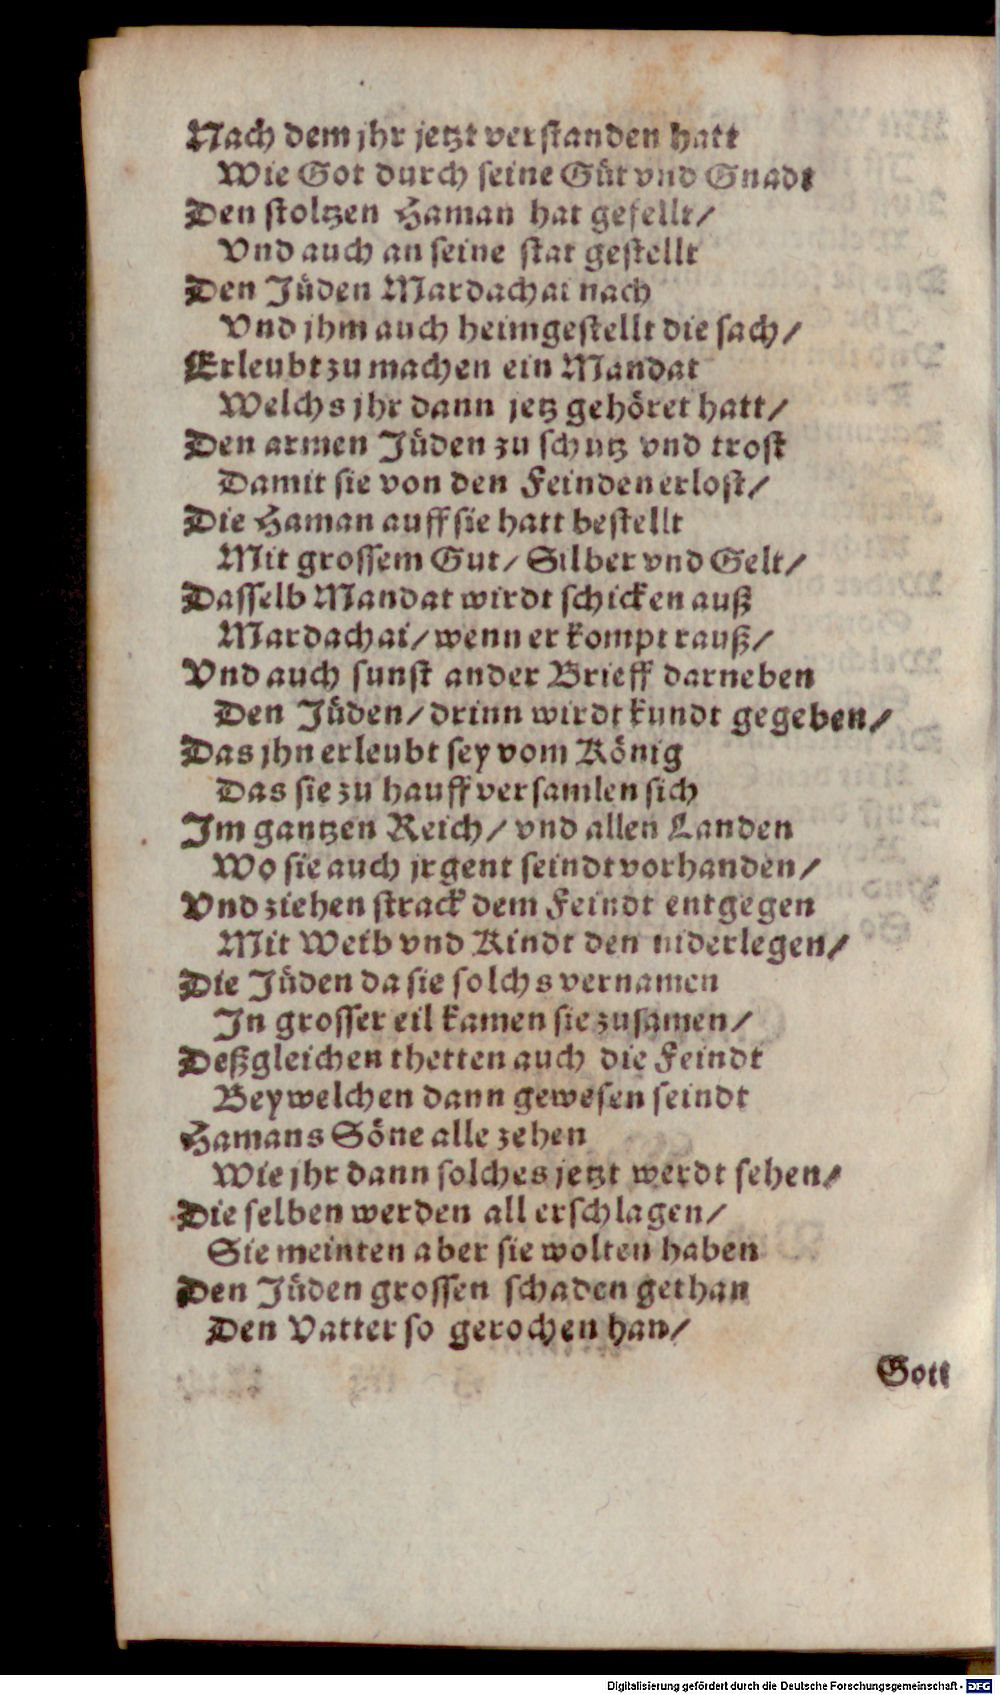 Nach dem jhr jetzt verstanden hatt
Wie Got durch seine Güt vnd Gnadt
Den stoltzen Haman hat gefellt/
Vnd auch an seine stat gestellt
Den Jüden Mardachai nach
Vnd jhm auch heimgestellt die sach/
Erleubt zu machen ein Mandat
Welchs jhr dann jetz gehöret hatt/
Den armen Jüden zu schutz vnd trost
Damit sie von den Feinden erlost/
Die Haman auff sie hatt bestellt
Mit grossem Gut/ Silber vnd Gelt/
Dasselb Mandat wirdt schicken auß
Mardachai/ wenn er kompt rauß/
Vnd auch sunst ander Brieff darneben
Den Jüden/ drinn wirdt kundt gegeben/
Das jhn erleubt sey vom König
Das sie zu hauff versamlen sich
Im gantzen Reich/ vnd allen Landen
Wo sie auch jrgent seindt vorhanden/
Vnd ziehen strack dem Feindt entgegen
Mit Weib vnd Kindt den niderlegen/
Die Jüden da sie solchs vernamen
In grosser eil kamen sie zusamen/
Deßgleichen thetten auch die Feindt
Bey welchen dann gewesen seindt
Hamans Söne alle zehen
Wie jhr dann solches jetzt werdt sehen/
Die selben werden all erschlagen/
Sie meinten aber sie wolten haben
Den Jüden grossen schaden gethan
Den Vatter so gerochen han/
Gott
Digitalisierung gefördert durch die Deutsche Forschungsgemeinschaft - DFG